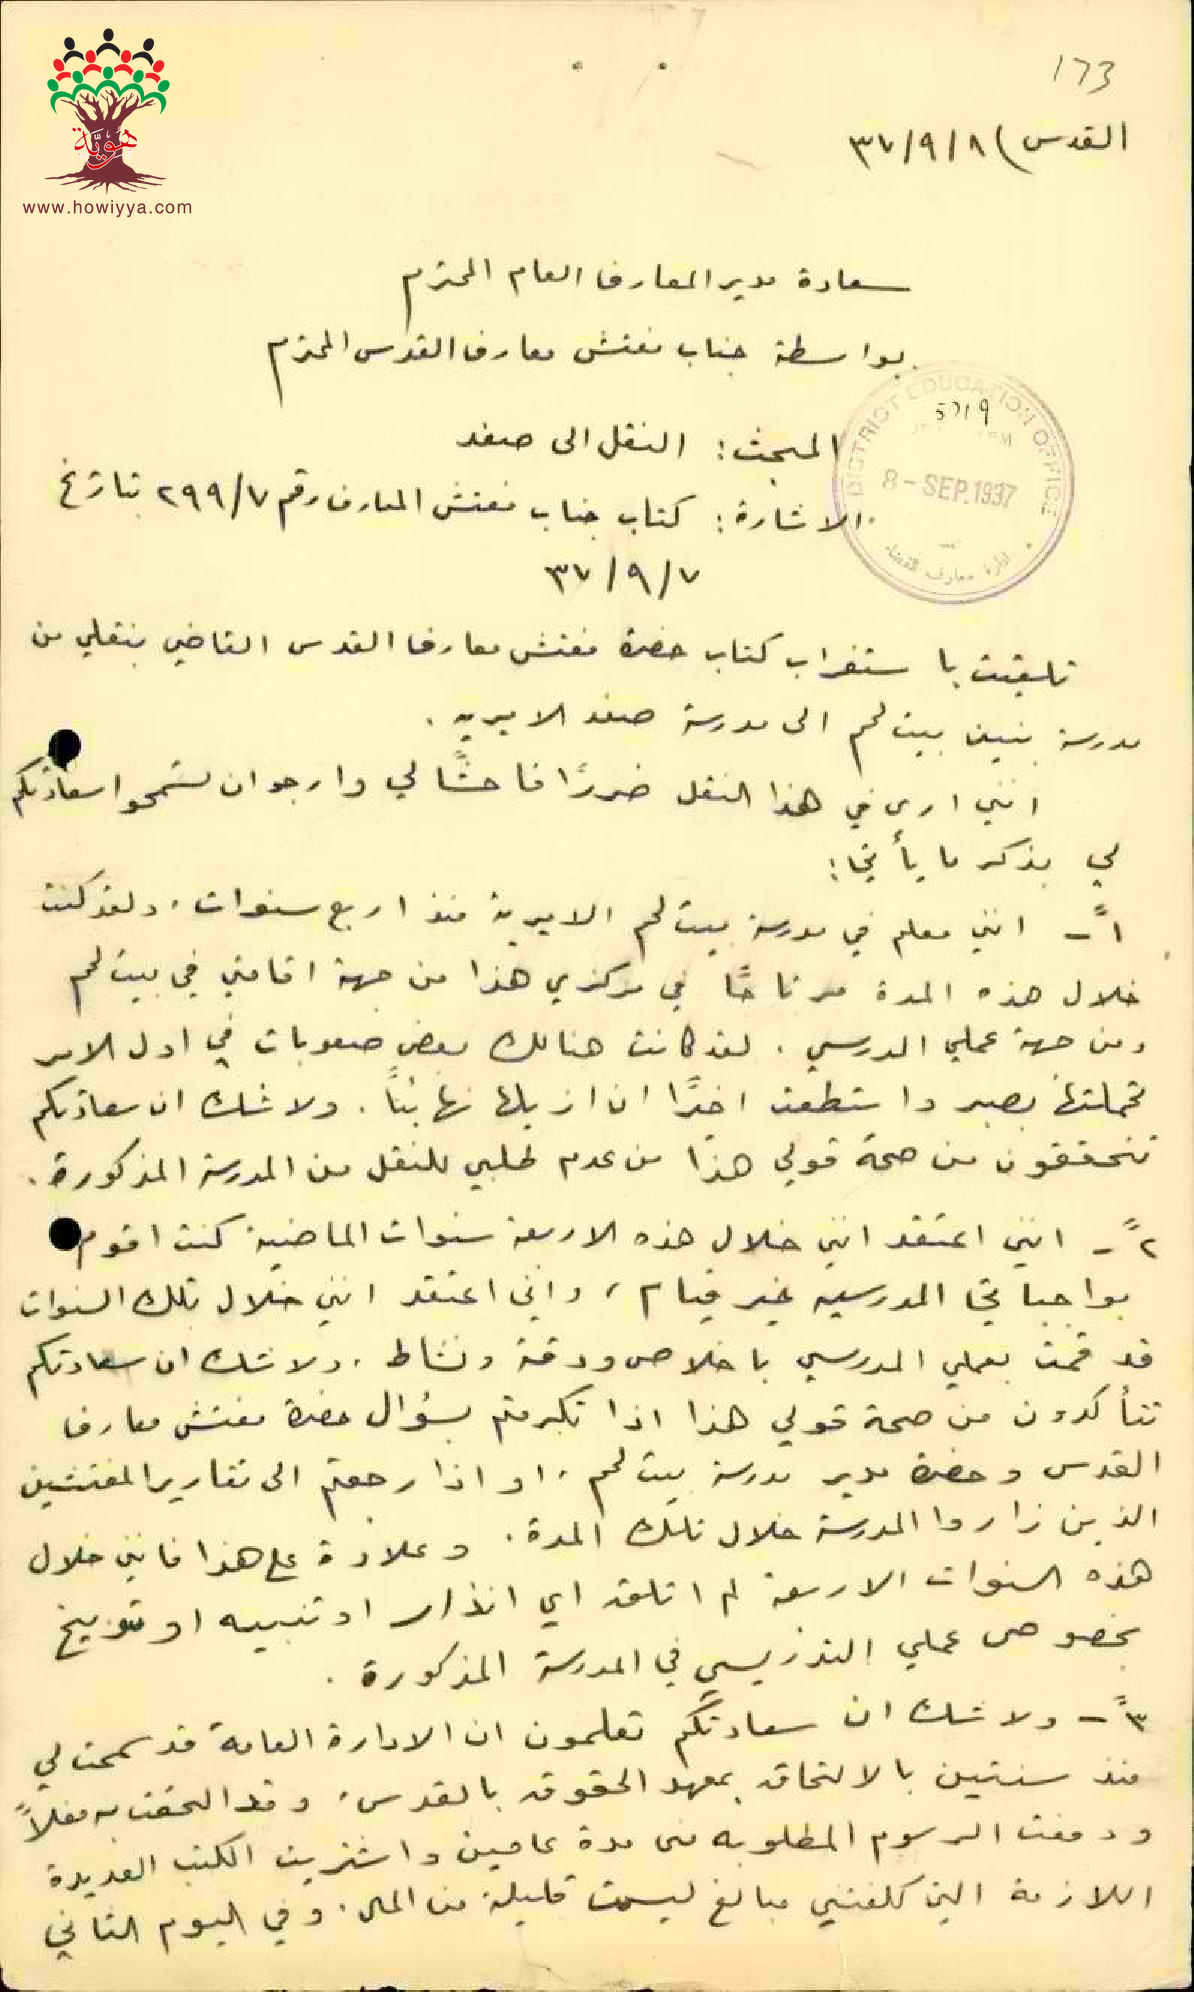 هويّة
www.howiyya.com
173
القدس) ٣٧/٩/٨
سعادة مدير المعارف العام المحترم
بواسطة جناب مفتش معارف القدس المحترم
DISTRICT EDUCATION OFFICE
5719
8 - SEP. 1937
ادارة معارف القضاء
المبحث: النقل الى صفد
الاشارة: كتاب جناب مفتش المعارف رقم ٢٩٩/٧ بتاريخ
٣٧/٩/٧
تلقيت باستغراب كتاب حضرة مفتش معارف القدس القاضي بنقلي من
مدرسة بنين بيت لحم الى مدرسة صفد الاميرية.
انني ارى في هذا النقل ضررًا فاحشًا لي وارجو ان تسمحوا سعادتكم
لي بذكر ما يأتي:
١ً- انني معلم في مدرسة بيت لحم الاميرية منذ اربع سنوات. ولقد كنت
خلال هذه المدة مرتاحًا في مركزي هذا من جهة اقامتي في بيت لحم
ومن جهة عملي المدرسي. لقد كانت هنالك بعض صعوبات في اول الامر
تحملتها بصبر واستطعت اخيرًا ان ازيلها نهائيًا. ولا شك ان سعادتكم
تتحققون من صحة قولي هذا من عدم طلبي للنقل من المدرسة المذكورة.
٢ً- انني اعتقد انني خلال هذه الاربعة سنوات الماضية كنت اقوم
بواجباتي المدرسيه خير قيام، واني اعتقد انني خلال تلك السنوات
قد قمت بعملي المدرسي باخلاص ودقة ونشاط. ولا شك ان سعادتكم
تتأكدون من صحة قولي هذا اذا تكرمتم بسؤال حضرة مفتش معارف
القدس وحضرة مدير مدرسة بيت لحم. او اذا رجعتم الى تقارير المفتشين
الذين زاروا المدرسة خلال تلك المدة. وعلاوة على هذا فانني خلال
هذه السنوات الاربعة لم اتلق اي انذار او تنبيه او توبيخ
بخصوص عملي التدريسي في المدرسة المذكورة.
٣ً- ولا شك ان سعادتكم تعلمون ان الادارة العامة قد سمحت لي
منذ سنتين بالالتحاق بمعهد الحقوق بالقدس. وقد التحقت به فعلاً
ودفعت الرسوم المطلوبه من مدة عامين واشتريت الكتب العديدة
اللازمة التي كلفتني مبالغ ليست قليلة من المال. وفي اليوم الثاني